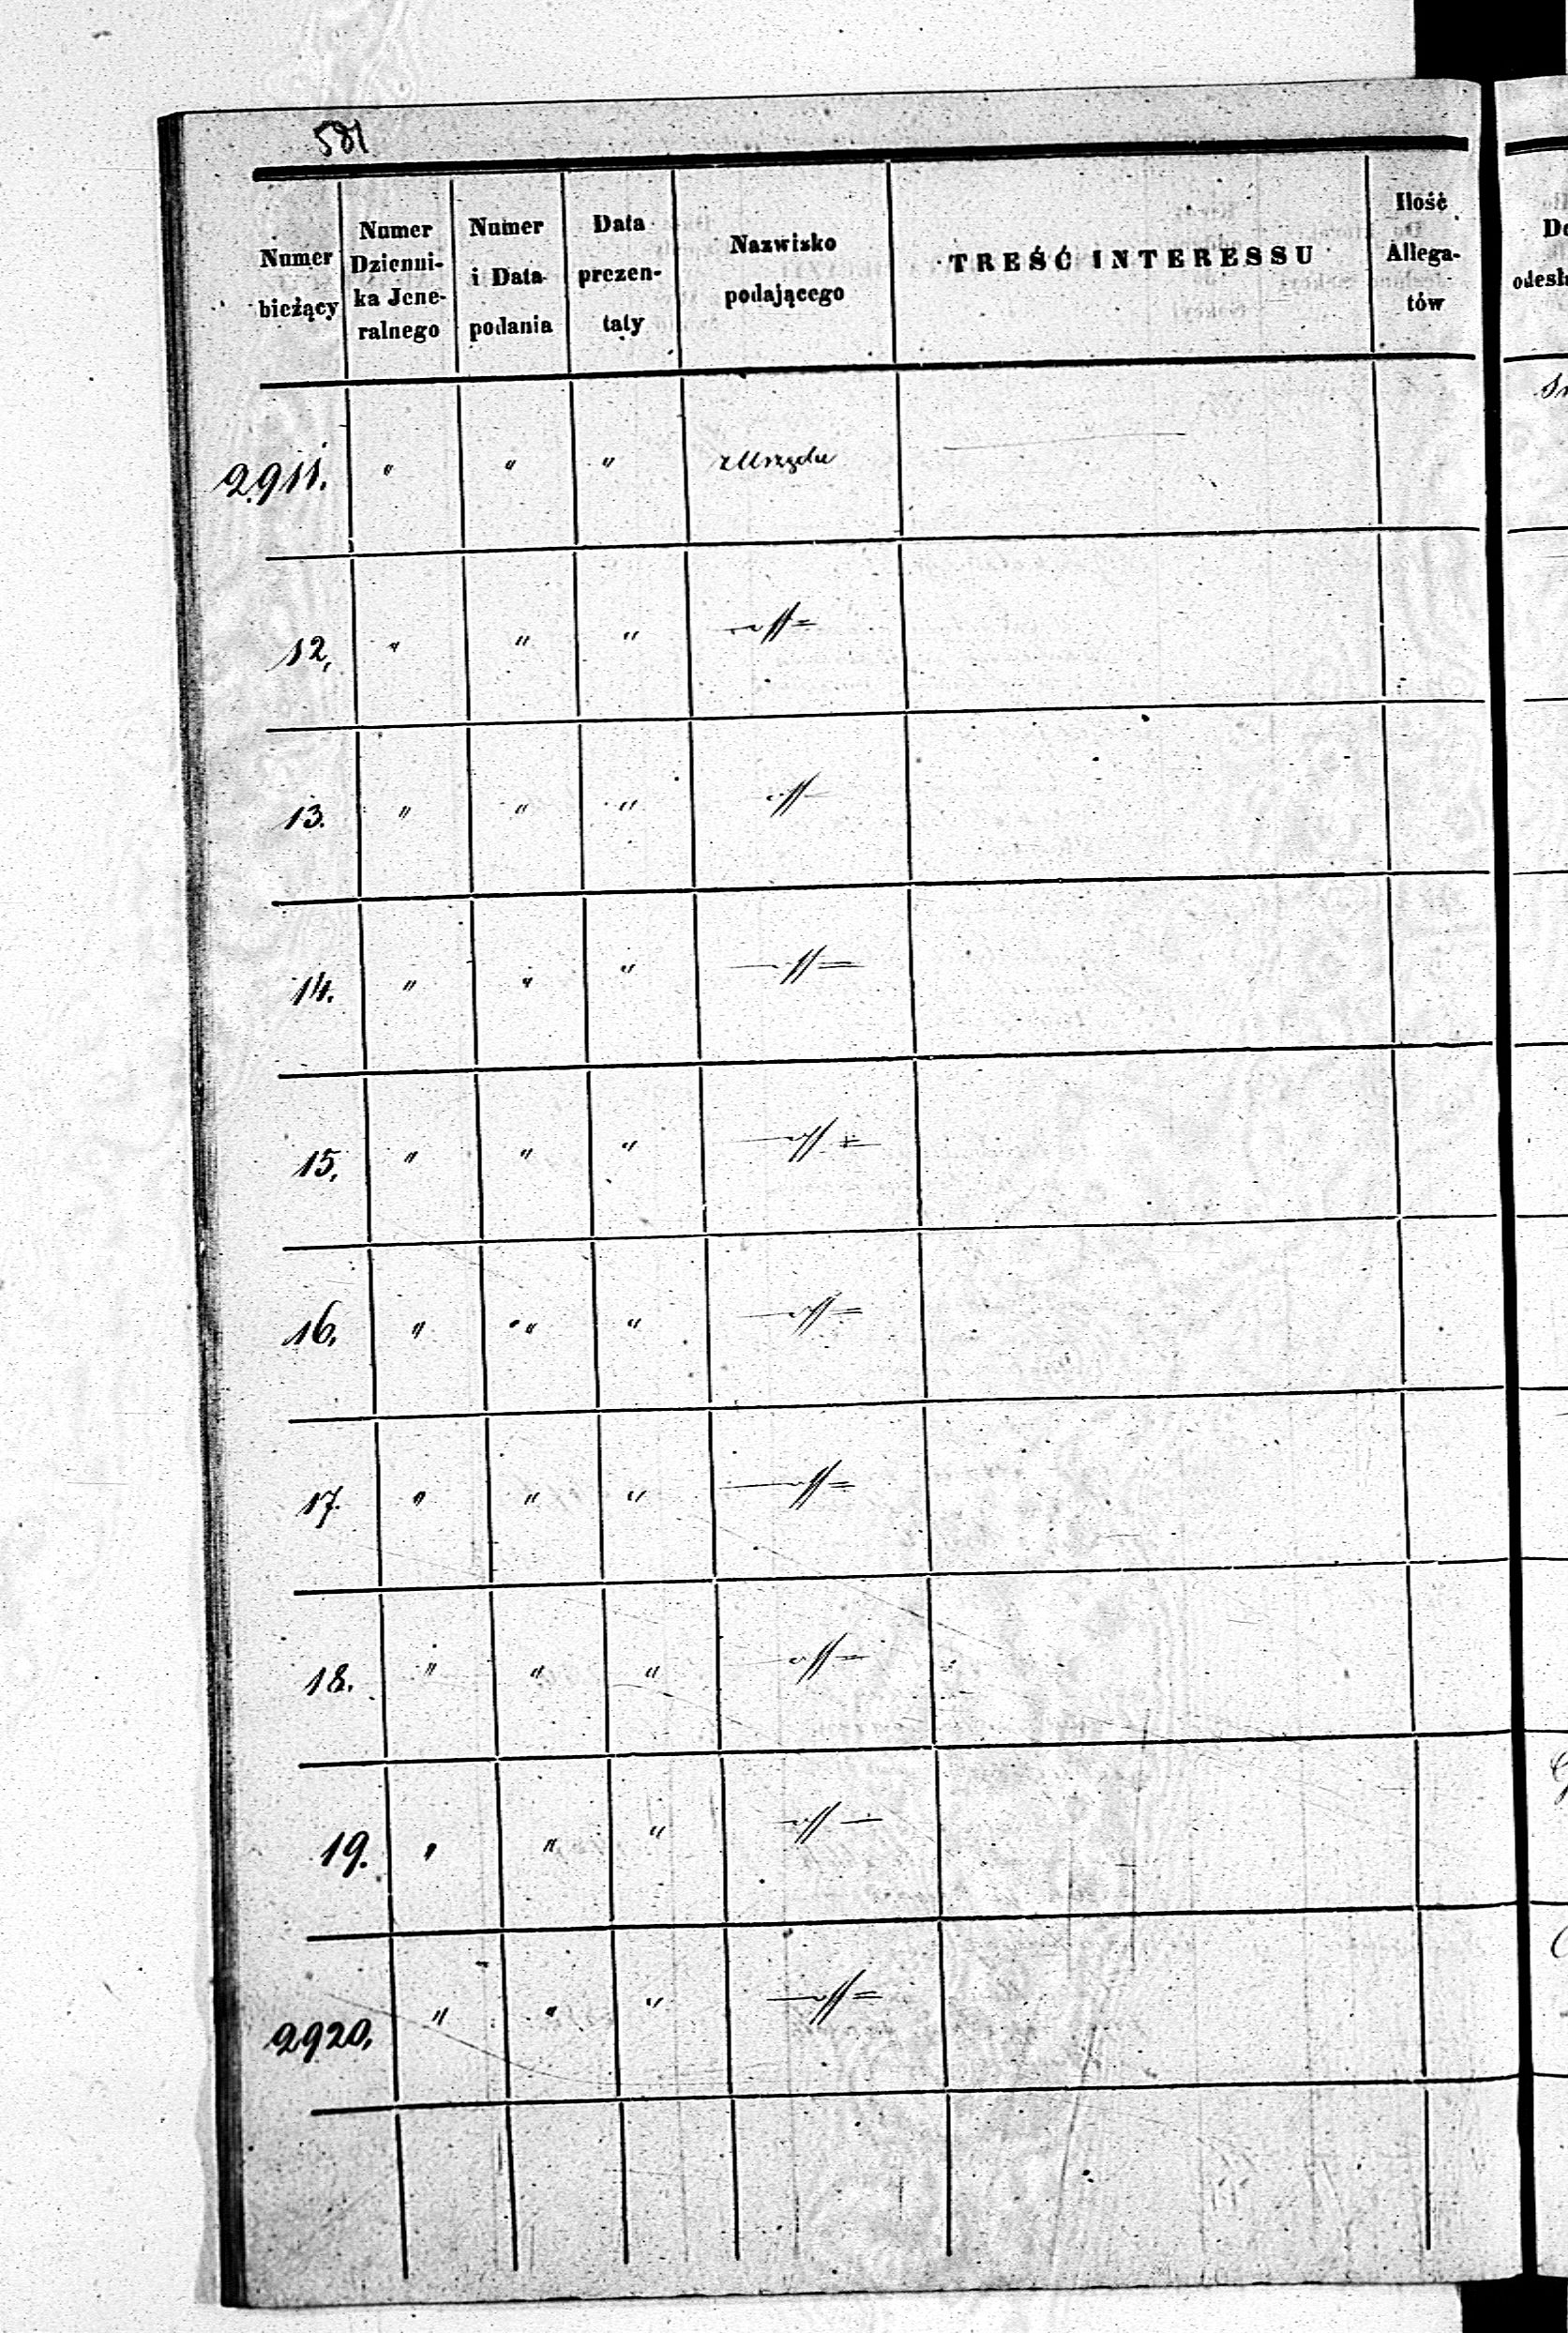 581
Numer bieżący
Numer Dzienni-ka Jene-ralnego
Numer i Data podania
Data prezen-taty
Nazwisko podającego
TREŚĆ INTERESSU
Ilość Allega-tów
2911. " " " z Urzędu
12, " " " —"—
13. " " " —"—
14. " " " —"—
15, " " " —"—
16, " " " —"—
17. " " " —"—
18. " " " —"—
19. " " " —"—
2920, " " " —"—